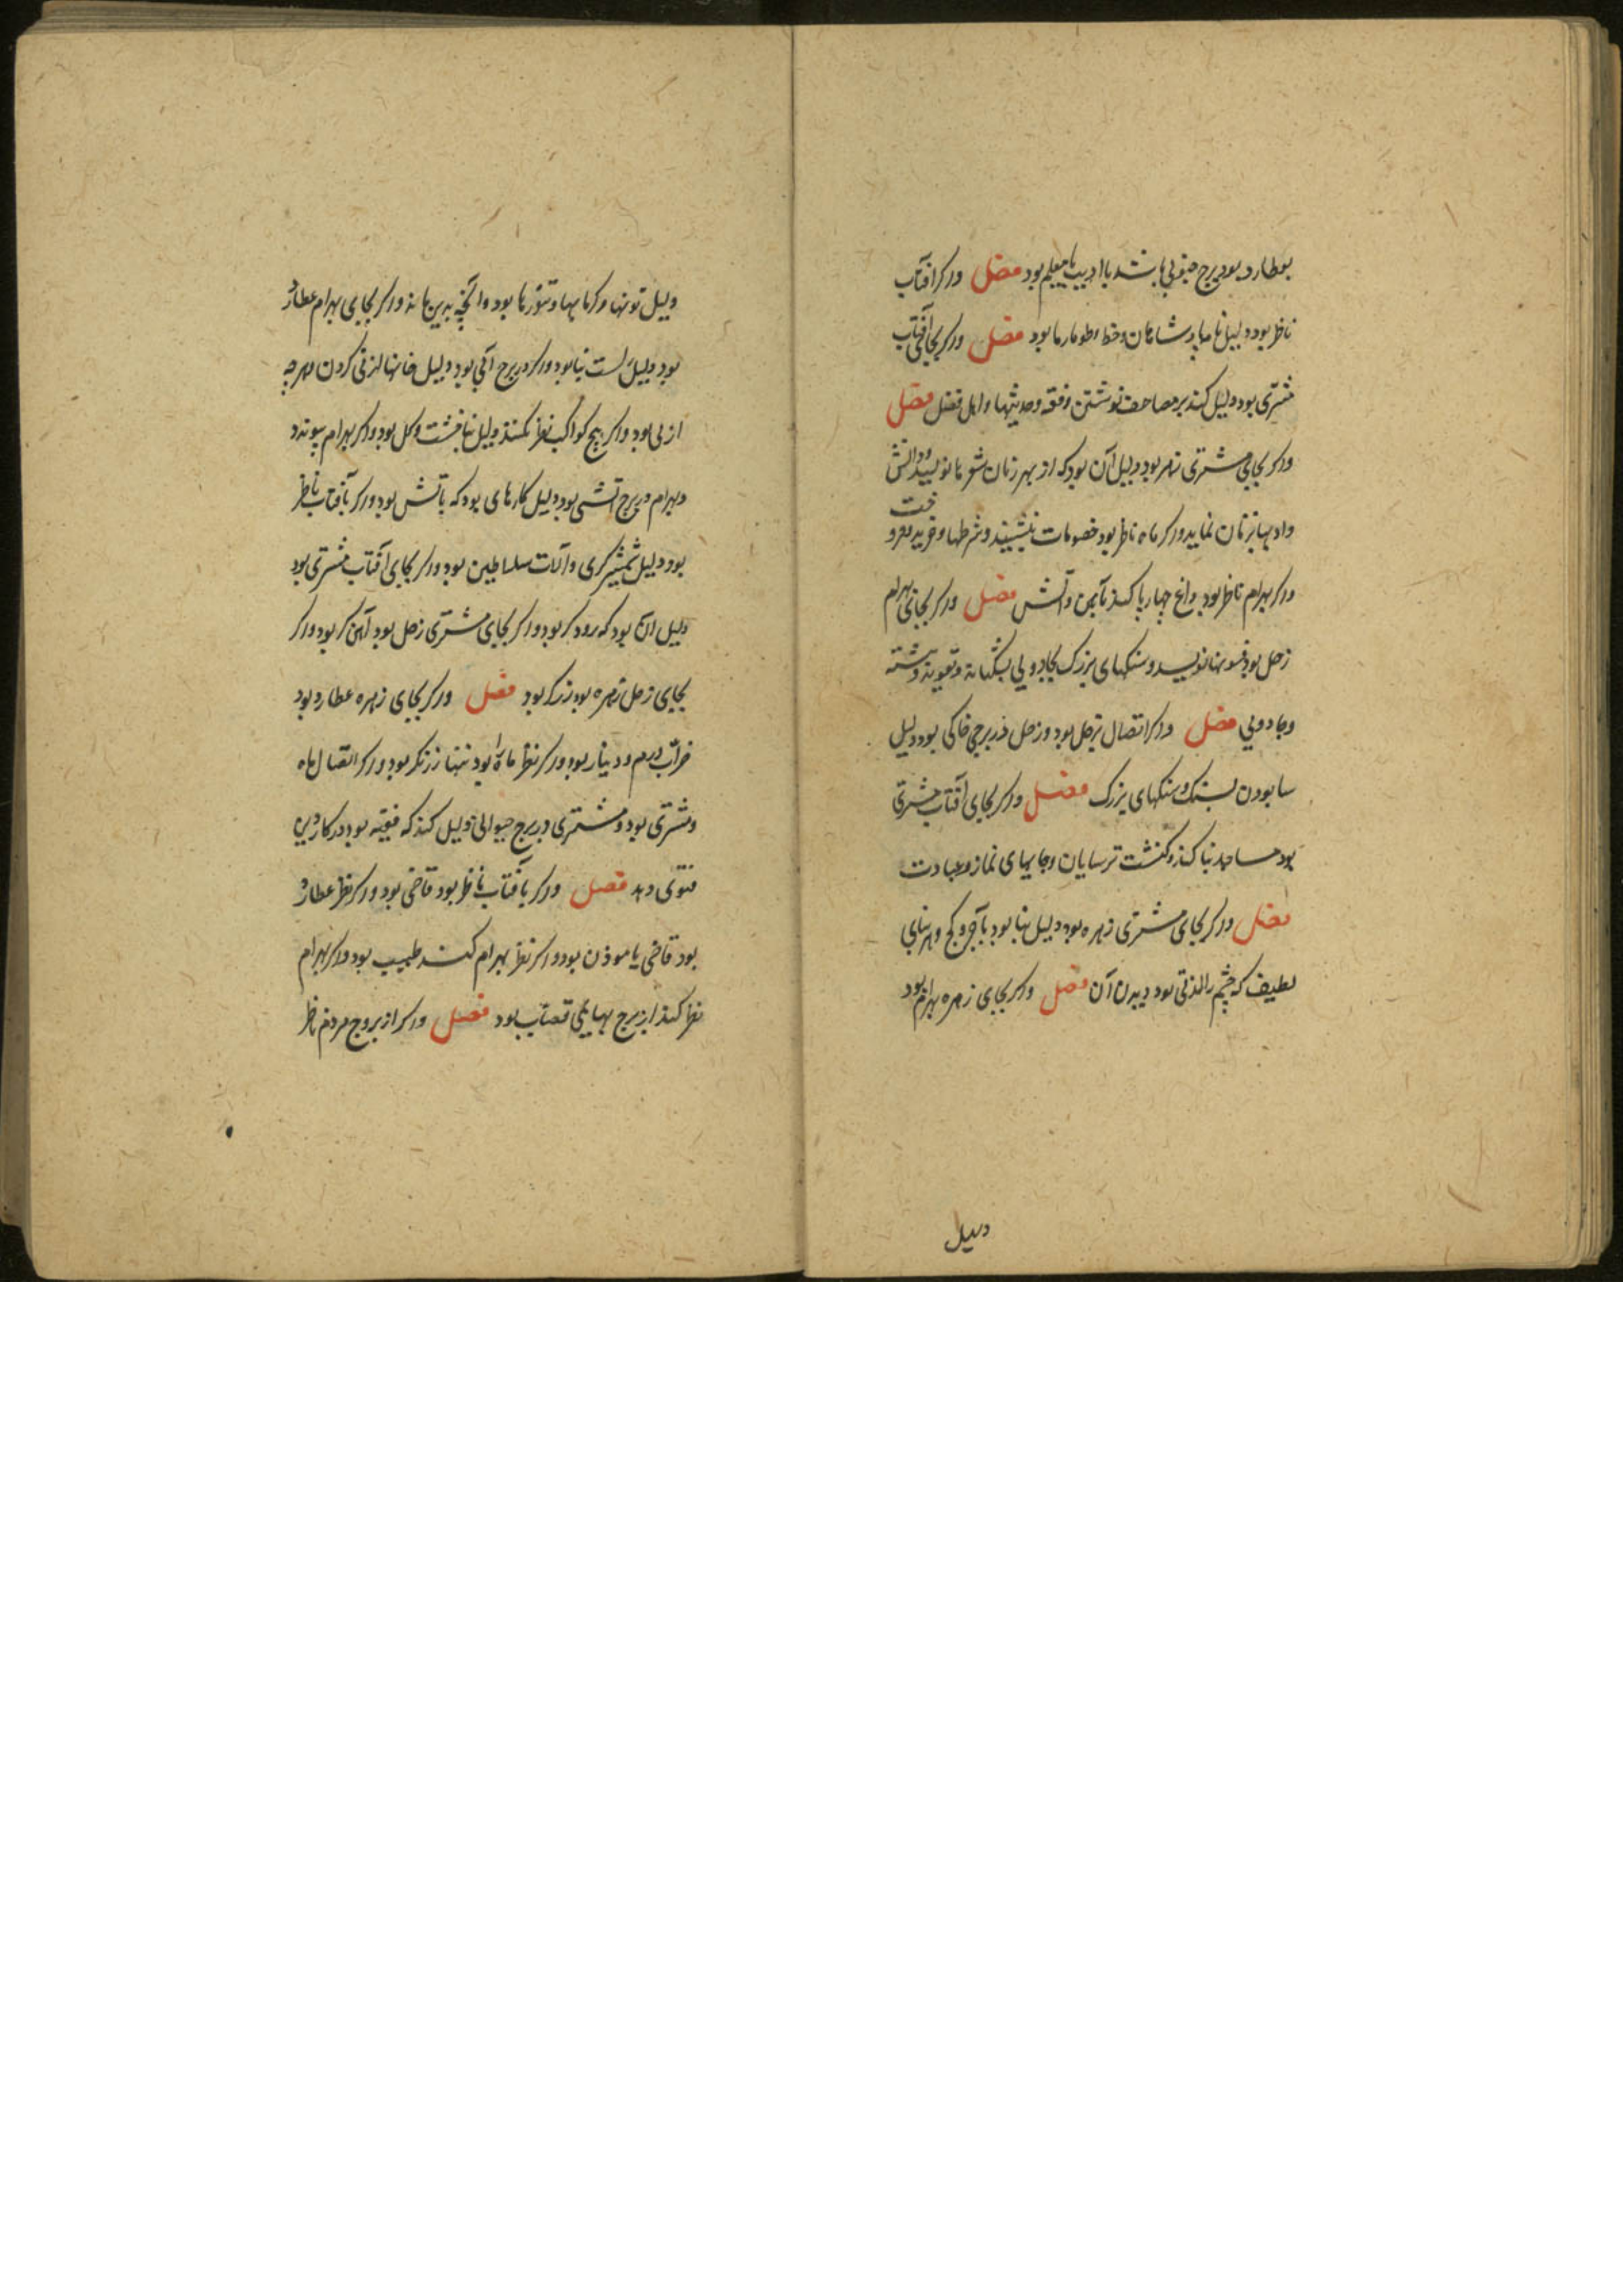 بعطارد بود ببرج جنوبی باشد یا ادیب یا معلم بود فصل واکر افتاب
ناظر بود دلیل نامهاء پادشاهان وخط وطومارها بود فصل واکر بجای آفتاب
مشتری بود دلیل کند بر مصاحف نوشتن وفقه وحدیثها واهل فضل فصل
واکر بجای مشتری زهره بود دلیل آن بود که از بهر زنان شعرها نویسد ودانش
وادبها بزنان نماید واکر ماه ناظر بود خصومات نبیسد وشرطها وخرید وفروخت
واکر بهرام ناظر بود داغ چهارپا کند بآهن وآتش فصل واکر بجای بهرام
زحل بود فسونها نویسد وسنکهای بزرک بجادویی وتعویذ نوشته
وجادویی فصل واکر اتصال بزحل بود وزحل در برجی خاکی بود دلیل
سابودن بسنک وسنکهای بزرک فصل واکر بجای آفتاب مشتری
بود مساجد بنا کند وکنشت ترسایان وجایهای نماز وعبادت
فصل واکر بجای مشتری زهره بود دلیل بنا بود بآجر وکج وهر بنای
لطیف که چشم را لذتی بود دیدن آن فصل واکر بجای زهره بهرام بود
دلیل
دلیل تونها وکرمابها وتنورها بود وآنچه بدین ماند واکر بجای بهرام عطارد
بود دلیل است بنا بود واکر در برج آبی بود دلیل خانها کردن وهرچه
از بی بود واکر هیچ کواکب نظر نکنند دلیل بنا خشت وکل بود واکر بهرام پیوندد
وبهرام در برج آتشی بود دلیل کارهای بود که بآتش بود واکر بآفتاب ناظر
بود دلیل شمشیرکری وآلات سلاطین بود واکر بجای آفتاب مشتری بود
دلیل آن بود که رودکر بود واکر بجای مشتری زحل بود آهنکر بود واکر
بجای زحل زهره بود زرکر بود فصل واکر بجای زهره عطارد بود
ضراب درم ودینار بود واکر نظر ماه را بود تنها زرنکر بود واکر اتصال ماه
ومشتری بود ومشتری در برج حیوانی دلیل کند که فقیه بود در کار دین
فتوی دهد فصل واکر بآفتاب ناظر بود قاضی بود واکر نظر عطارد
بود قاضی یا موذن بود واکر نظر بهرام کند طبیب بود واکر بهرام
نظر کند از برج بهایمی قصاب بود فصل واکر از بروج مردم ناظر